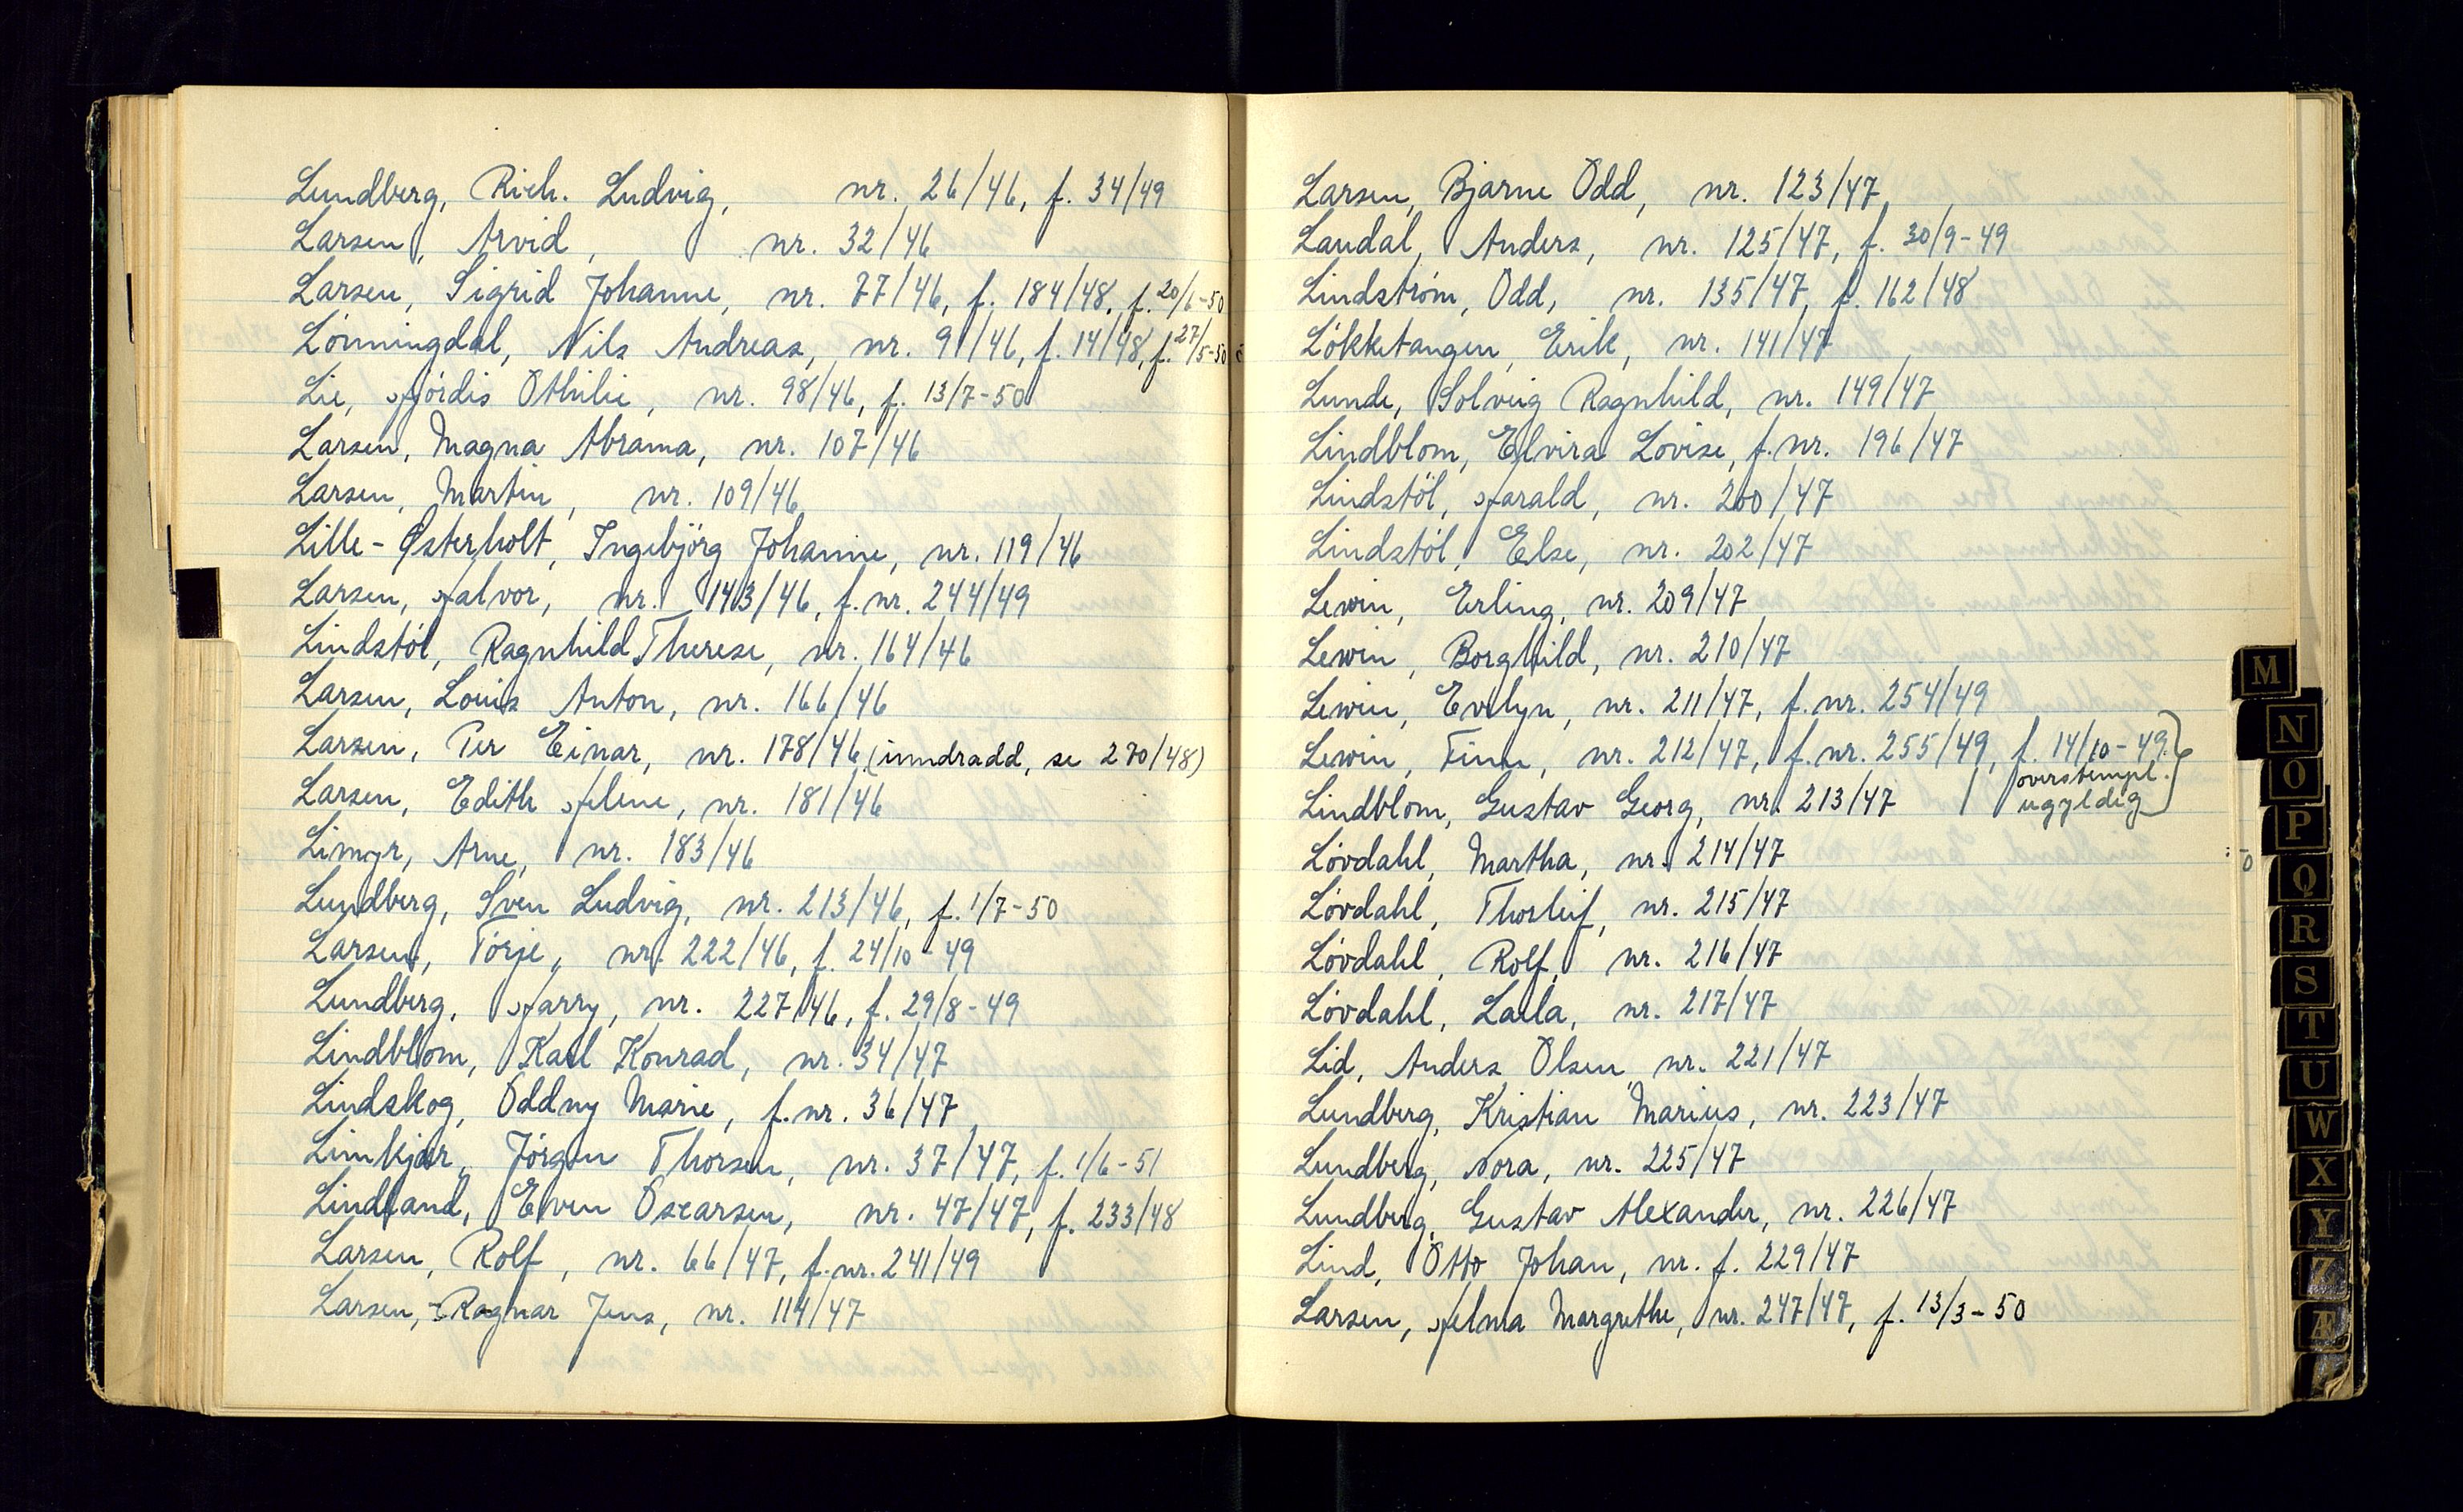 Lundberg, Rich. Ludvig, nr. 26/46, f. 34/49
Larsen, Arvid, nr. 32/46
Larsen, Sigrid Johanne, nr. 77/46, f. 184/48, f. 20/6-50
Lönningdal, Nils Andreas, nr. 91/46, f. 14/48, f. 27/5-50
Lie, Hjördis Othilie, nr. 98/46, f. 13/7-50
Larsen, Magna Abrama, nr. 107/46
Larsen, Martin, nr. 109/46
Lille-Østerholt, Ingebjörg Johanne, nr. 119/46
Larsen, Halvor, nr. 143/46, f. nr. 244/49
Lindstöl, Ragnhild Therese, nr. 164/46
Larsen, Louis Anton, nr. 166/46
Larsen, Per Einar, nr. 178/46 (inndradd, se 270/48)
Larsen, Edith Helene, nr. 181/46
Limyr, Arne, nr. 183/46
Lundberg, Sven Ludvig, nr. 213/46, f. 1/7-50
Larsen, Törje, nr. 222/46, f. 24/10-49
Lundberg, Harry, nr. 227/46, f. 29/8-49
Lindblom, Karl Konrad, nr. 34/47
Lindskog, Oddny Marie, f. nr. 36/47
Limkjær, Jörgen Thorsen, nr. 37/47, f. 1/6-51
Lindland, Even Oscarsen, nr. 47/47, f. 233/48
Larsen, Rolf, nr. 66/47, f. nr. 241/49
Larsen, Ragnar Jens, nr. 114/47
Larsen, Bjarne Odd, nr. 123/47
Landal, Anders, nr. 125/47, f. 30/9-49
Lindström, Odd, nr. 135/47, f. 162/48
Lökketangen, Erik, nr. 141/47
Lunde, Solveig Ragnhild, nr. 149/47
Lindblom, Elvira Lovise, f. nr. 196/47
Lindstöl, Harald, nr. 200/47
Lindstöl, Else, nr. 202/47
Lewin, Erling, nr. 209/47
Lewin, Borghild, nr. 210/47
Lewin, Evelyn, nr. 211/47, f. nr. 254/49
Lewin, Finn, nr. 212/47, f. nr. 255/49, f. 14/10-49.
overstempl.
Lindblom, Gustav Georg, nr. 213/47 ugyldig
Lövdahl, Martha, nr. 214/47
Lövdahl, Thorleif, nr. 215/47
Lövdahl, Rolf, nr. 216/47
Lövdahl, Laila, nr. 217/47
Lid, Anders Olsen, nr. 221/47
Lundberg, Kristian Marius, nr. 223/47
Lundberg, Nora, nr. 225/47
Lundberg, Gustav Alexander, nr. 226/47
Lind, Otto Johan, nr. f. 229/47
Larsen, Helma Margrethe, nr. 247/47, f. 13/3-50
M
N
O
P
Q
R
S
T
U
W
X
Y
Z
Æ